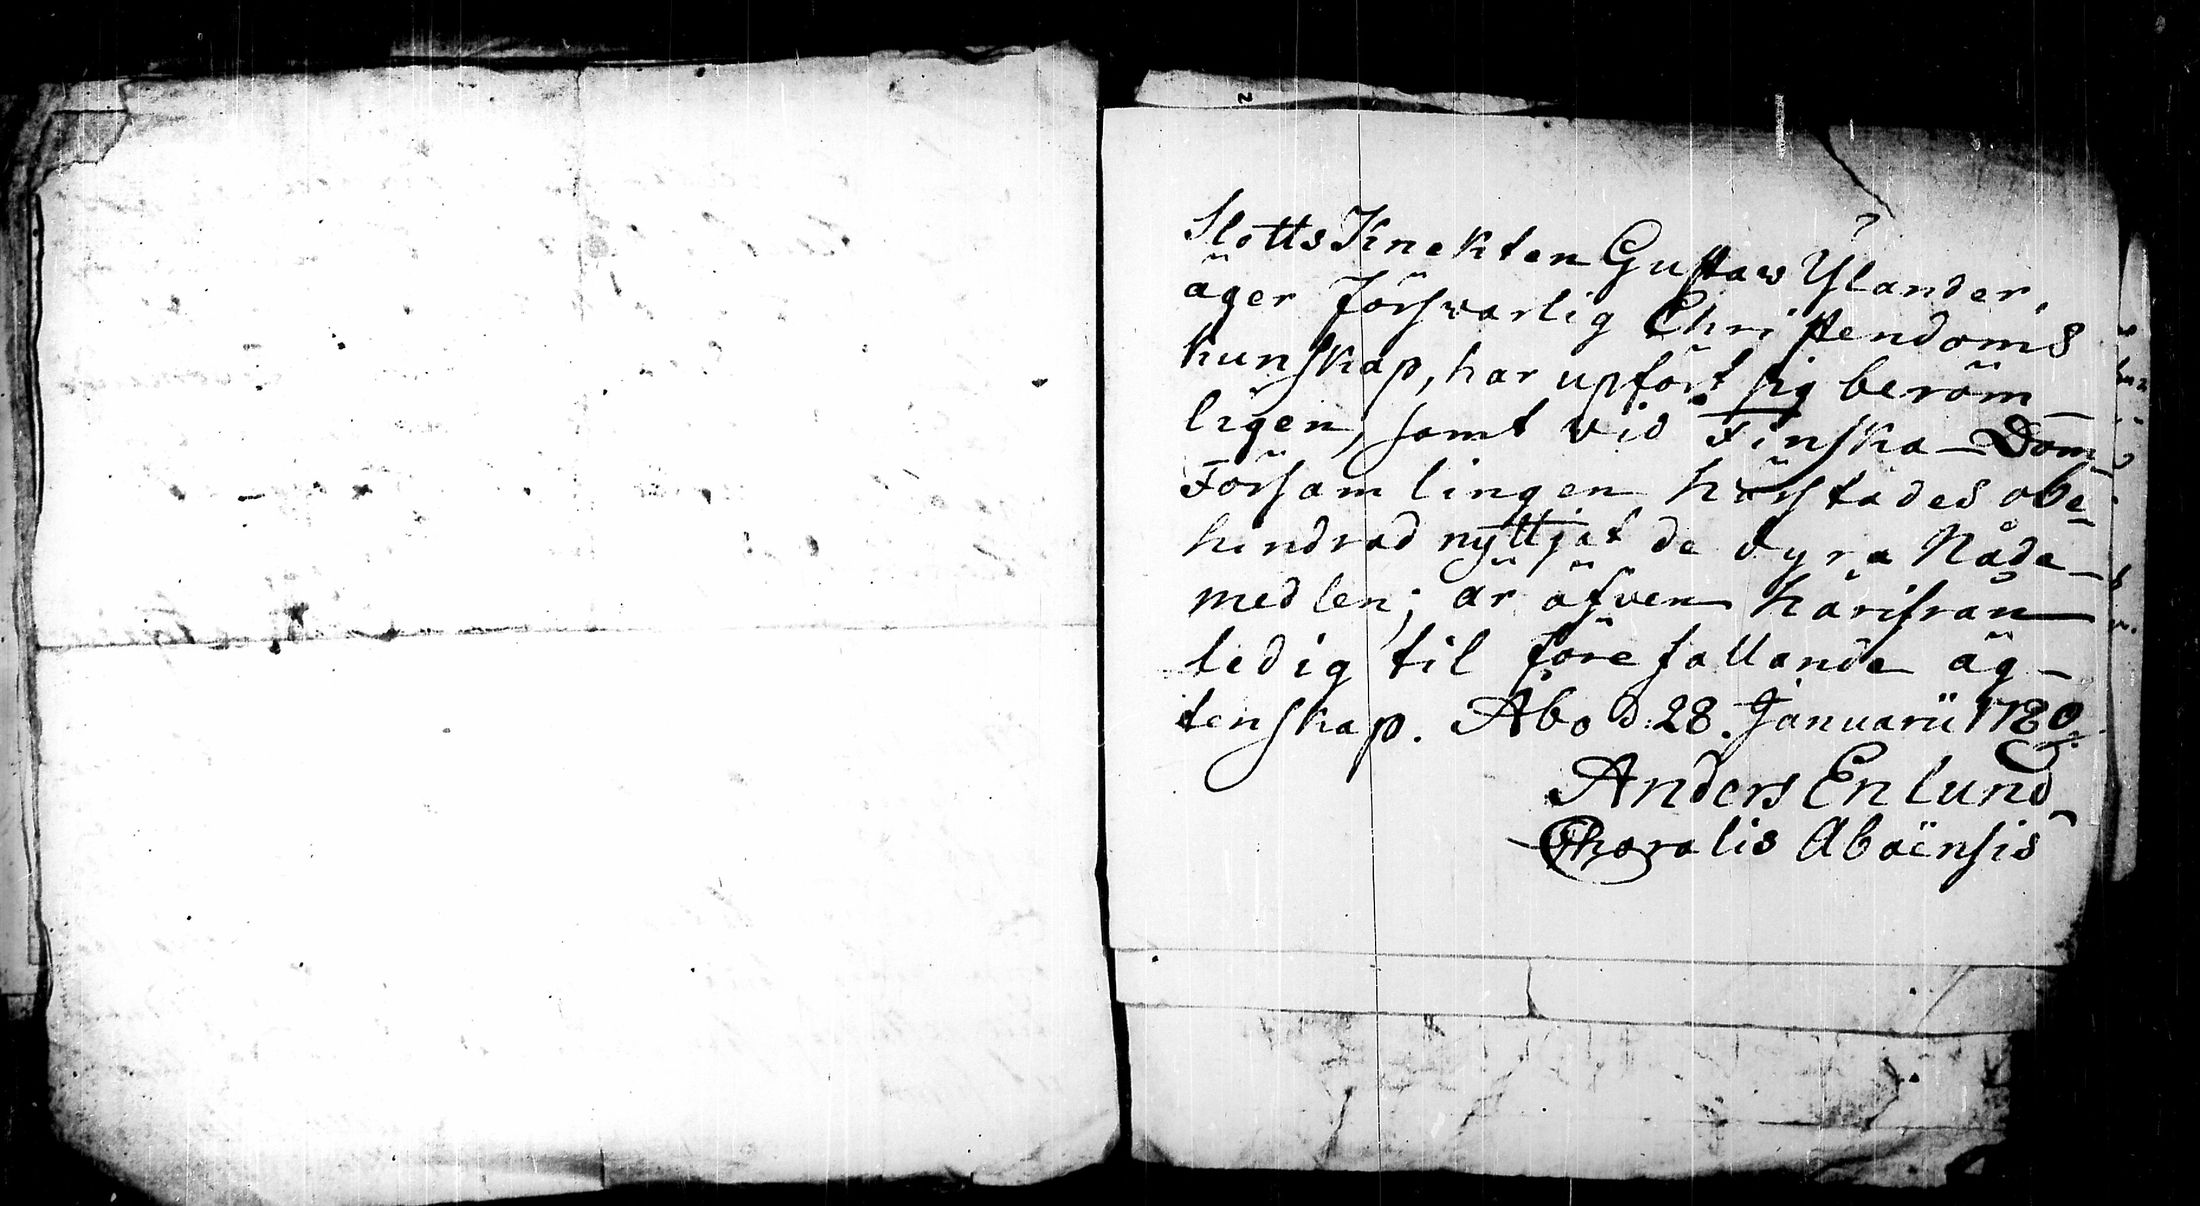 SlottsKnekten Gustaw Ylander,
äger försvarlig Christendoms
kunskap, har upfört sig beröm
ligen, samt vid Finska Dom
Församlingen härstädes obe-
hindrad nyttjat de dyra Nåde-
medlen; är äfven härifrån
ledig til förefallande äg-
tenskap. Åbo d. 28. Januarii 1780.
Anders Enlund
Choralis Aboënsis